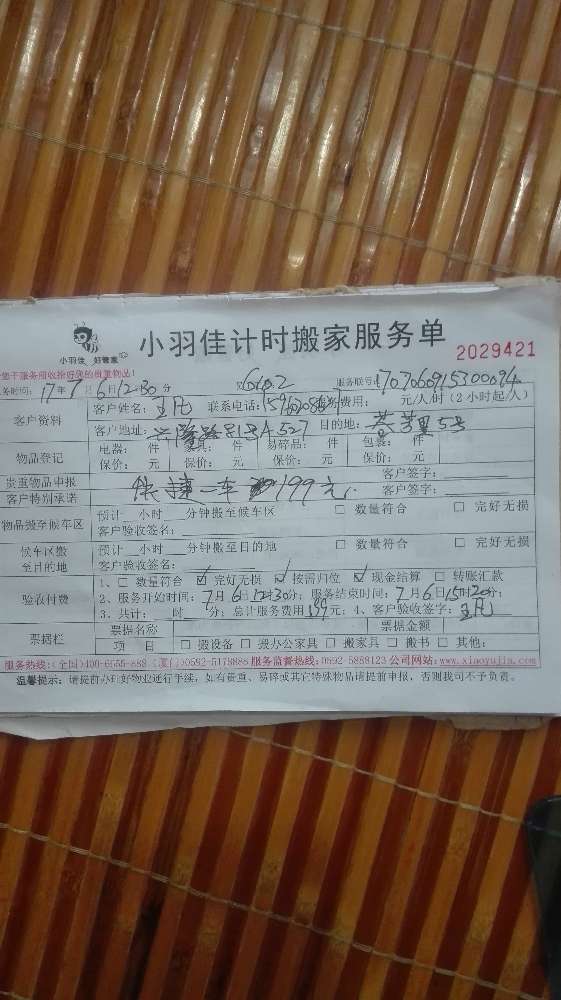 小羽佳 好管家
小羽佳计时搬家服务单
2029421
您于服务前收拾好您的贵重物品!
务时间: 17年7月6日12:30分 服务联号: 170706915300694
客户资料 客户姓名: 王 联系电话: 费用: 元/人/时(2小时起/人)
客户地址: A527 目的地: 5号
物品登记 电器: 件 家具: 件 易碎品: 件 包装: 件
保价: 元 保价: 元 保价: 元 保价: 元
贵重物品申报 客户签字:
客户特别承诺 一车 199元. 客户签字:
物品搬至候车区 预计 小时 分钟搬至候车区 □ 数量符合 □ 完好无损
客户验收签名:
候车区搬至目的地 预计 小时 分钟搬至目的地 □ 数量符合 □ 完好无损
客户验收签名:
验收付费 1、□ 数量符合 ☑ 完好无损 ☑ 按需归位 ☑ 现金结算 □ 转账汇款
2、服务开始时间: 7月6日12时30分; 服务结束时间: 7月6日15时20分;
3、共计: 时 分; 总计服务费用199元; 4、客户验收签字: 王
票据栏 票据名称 票据金额
项 目 □ 搬设备 □ 搬办公家具 □ 搬家具 □ 搬书 □ 其他:
服务热线: (全国)400-6655-888 (厦门)0592-5179886 服务监督热线: 0592-5888123 公司网站: www.xiaoyujia.com
温馨提示: 请提前办理好物业进行手续, 如有贵重、易碎或其它特殊物品请提前申报, 否则我司不予负责。